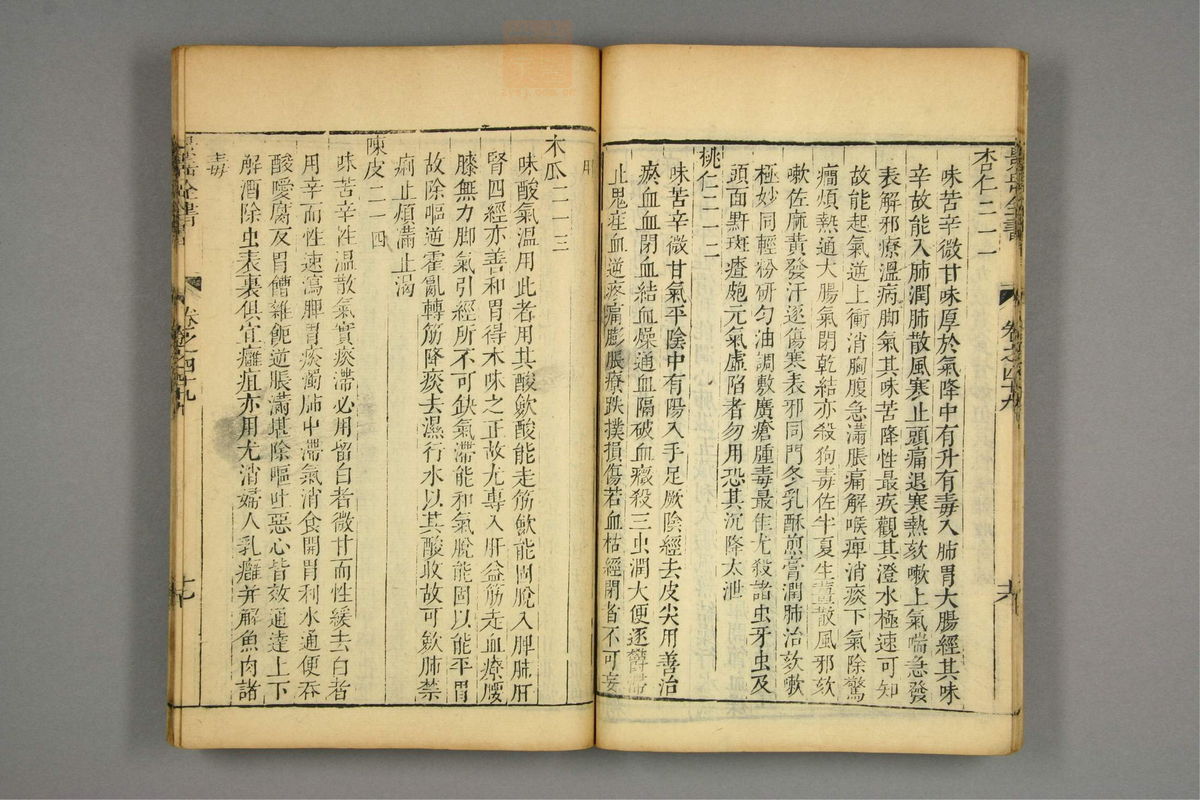 景岳全書
卷之四十九
杏仁二一一
味苦辛微甘味厚於氣降中有升有毒入肺胃大腸經其味
辛故能入肺潤肺散風寒止頭痛退寒熱欬嗽上氣喘急發
表解邪療溫病脚氣其味苦降性最疾觀其澄水極速可知
故能起氣逆上衝消胸腹急滿脹痛解喉痺消痰下氣除驚
癇煩熱通大腸氣閉乾結亦殺狗毒佐半夏生薑散風邪欬
嗽佐麻黃發汗逐傷寒表邪同門冬乳酥煎膏潤肺治欬嗽
極妙同輕粉研勻油調敷廣瘡腫毒最佳尤殺諸虫牙虫及
頭面䵟斑瘡皰元氣虛陷者勿用恐其沉降太泄
桃仁二一二
味苦辛微甘氣平陰中有陽入手足厥陰經去皮尖用善治
瘀血血閉血結血燥通血隔破血癥殺三虫潤大便逐鬱滯
止鬼疰血逆疼痛膨脹療跌撲損傷若血枯經閉者不可妄
用
木瓜二一三
味酸氣溫用此者用其酸歛酸能走筋歛能固脫入脾肺肝
腎四經亦善和胃得木味之正故尤專入肝益筋走血療腰
膝無力脚氣引經所不可缺氣滯能和氣脫能固以能平胃
故除嘔逆霍亂轉筋降痰去濕行水以其酸收故可歛肺禁
痢止煩滿止渴
陳皮二一四
味苦辛性溫散氣實痰滯必用留白者微甘而性緩去白者
用辛而性速瀉脾胃痰濁肺中滯氣消食開胃利水通便吞
酸噯腐反胃嘈雜呃逆脹滿堪除嘔吐惡心皆效通達上下
解酒除虫表裏俱宜癰疽亦用尤消婦人乳癰并解魚肉諸
毒
景岳全書
卷之四十九